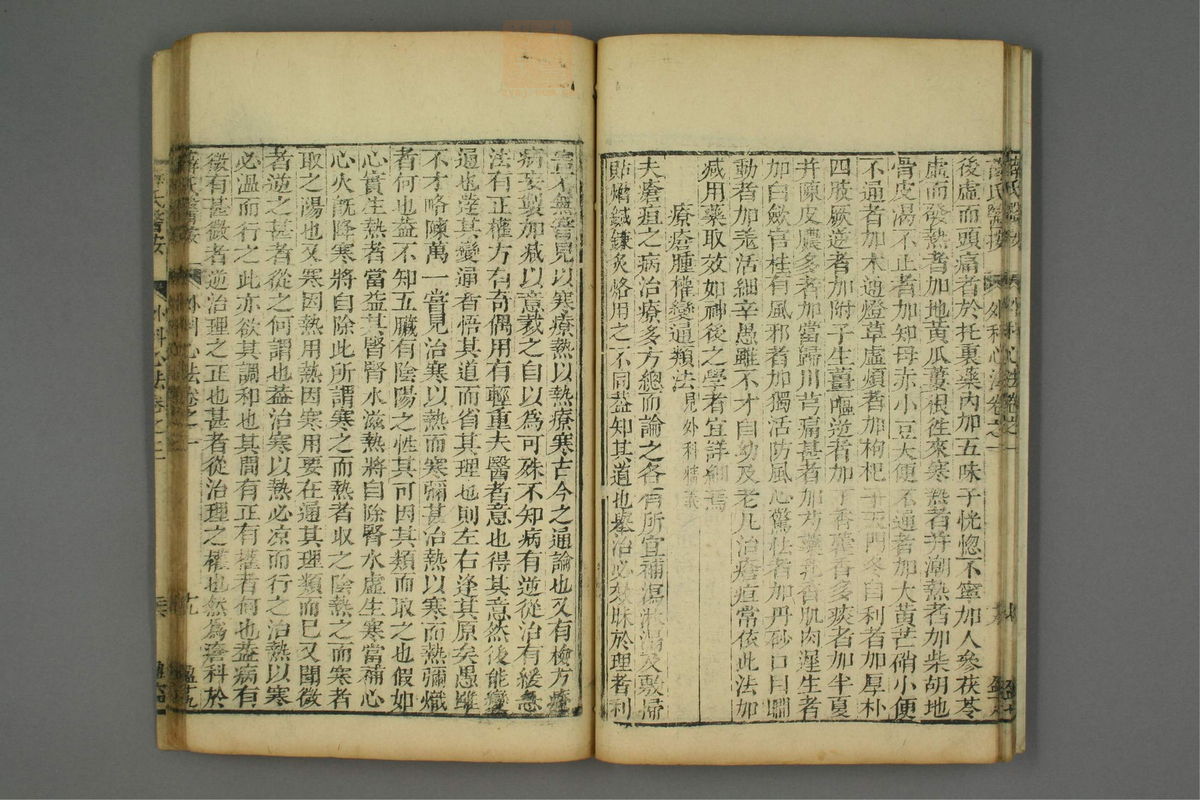 薛氏醫按 外科心法卷之一
後虛而頭痛者於托裏藥內加五味子恍惚不寧加人參茯苓
虛而發熱者加地黃瓜蔞根徃來寒熱者并潮熱者加柴胡地
骨皮渴不止者加知母赤小豆大便不通者加大黃芒硝小便
不通者加木通燈草虛煩者加枸杞子天門冬自利者加厚朴
四肢厥逆者加附子生薑嘔逆者加丁香藿香多痰者加半夏
并陳皮膿多者加當歸川芎痛甚者加芍藥乳香肌肉遲生者
加白蘞官桂有風邪者加獨活防風心驚怯者加丹砂口目瞤
動者加羗活細辛愚雖不才自幼及老凡治瘡疽常依此法加
減用藥取效如神後之學者宜詳細焉
療瘡腫權變通類法 見外科精義
夫瘡疽之病治療多方總而論之各有所宜補瀉淋溻及敷掃
貼𤍽鍼鐮灸烙用之不同葢知其道也舉治必效昧於理者利
害不無嘗見以寒療熱以熱療寒古今之通論也又有檢方療
病妄製加减以意裁之自以為可殊不知病有逆從治有緩急
法有正權方有奇偶用有輕重夫醫者意也得其意然後能變
通也達其變通者悟其道而省其理也則左右逢其原矣愚雖
不才略陳萬一嘗見治寒以熱而寒彌甚治熱以寒而熱彌熾
者何也葢不知五臟有陰陽之性其可因其類而取之也假如
心實生熱者當益其腎腎水滋熱將自除腎水虛生寒當補心
心火旣降寒將自除此所謂寒之而熱者取之陰熱之而寒者
取之陽也又寒因熱用熱因寒用要在通其理類而巳又聞微
者逆之甚者從之何謂也葢治寒以熱必凉而行之治熱以寒
必溫而行之此亦欲其調和也其間有正有權者何也葢病有
微有甚微者逆治理之正也甚者從治理之權也然為瘡科於
薛氏醫按 外科心法卷之一
薛氏醫按 外科心法卷之二